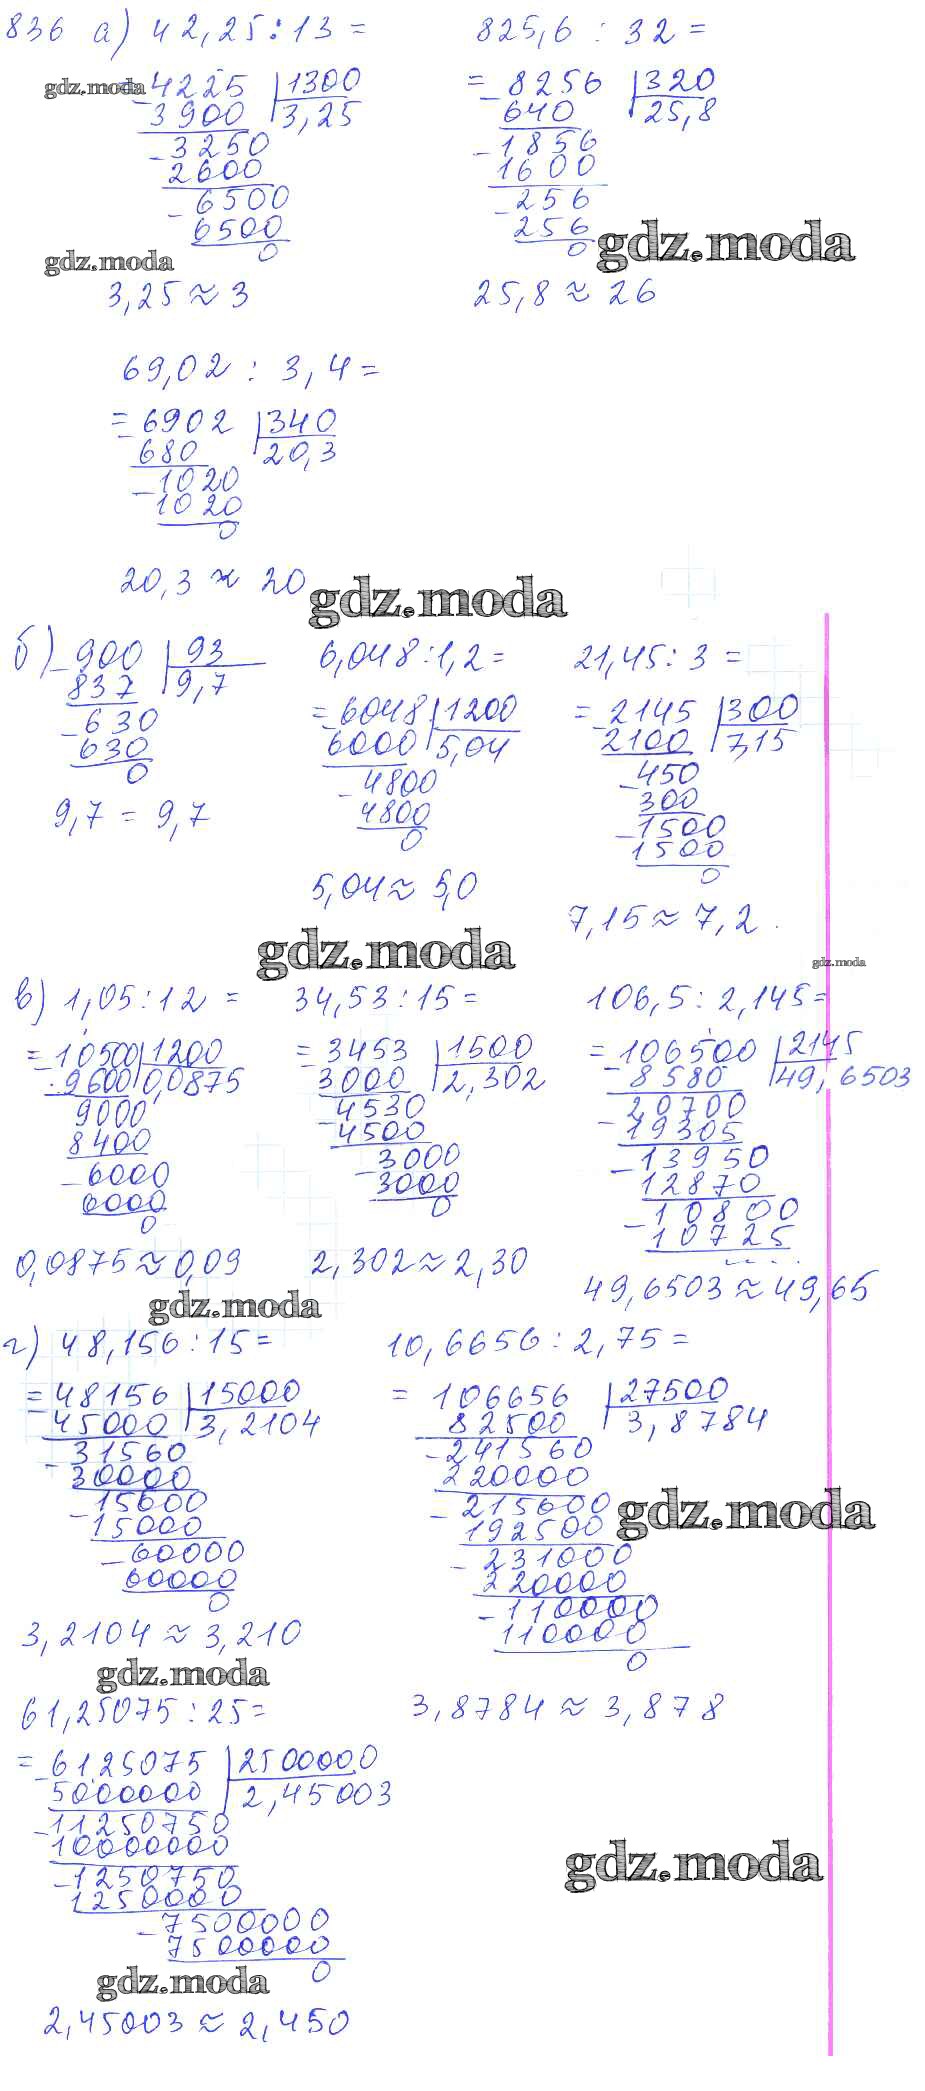 836 а) 42,25 : 13 =
= 4225 | 1300
3900 3,25
- 3250
2600
- 6500
6500
0
3,25 ≈ 3
825,6 : 32 =
= - 8256 | 320
640 25,8
- 1856
1600
- 256
256
0
25,8 ≈ 26
gdz.moda
gdz.moda
gdz.moda
69,02 : 3,4 =
= - 6902 | 340
680 20,3
- 1020
1020
0
20,3 ≈ 20
gdz.moda
б) - 900 | 93
837 9,7
- 630
630
0
9,7 = 9,7
6,048 : 1,2 =
= - 6048 | 1200
6000 5,04
- 4800
4800
0
5,04 ≈ 5,0
21,45 : 3 =
= - 2145 | 300
2100 7,15
- 450
300
- 1500
1500
0
7,15 ≈ 7,2 .
gdz.moda
gdz.moda
в) 1,05 : 12 =
= - 10500 | 1200
9600 0,0875
9000
8400
- 6000
6000
0
0,0875 ≈ 0,09
34,53 : 15 =
= - 3453 | 1500
3000 2,302
- 4530
4500
- 3000
3000
0
2,302 ≈ 2,30
106,5 : 2,145 =
= - 106500 | 2145
8580 49,6503
- 20700
19305
- 13950
12870
- 10800
10725
....
49,6503 ≈ 49,65
gdz.moda
г) 48,156 : 15 =
= - 48156 | 15000
45000 3,2104
- 31560
30000
- 15600
15000
- 60000
60000
0
3,2104 ≈ 3,210
10,6656 : 2,75 =
= 106656 | 27500
82500 3,8784
- 241560
220000
- 215600
192500
- 231000
220000
- 110000
110000
0
gdz.moda
gdz.moda
3,8784 ≈ 3,878
61,25075 : 25 =
= - 6125075 | 2500000
5000000 2,45003
- 11250750
10000000
- 1250750
1250000
- 7500000
7500000
0
gdz.moda
gdz.moda
2,45003 ≈ 2,450